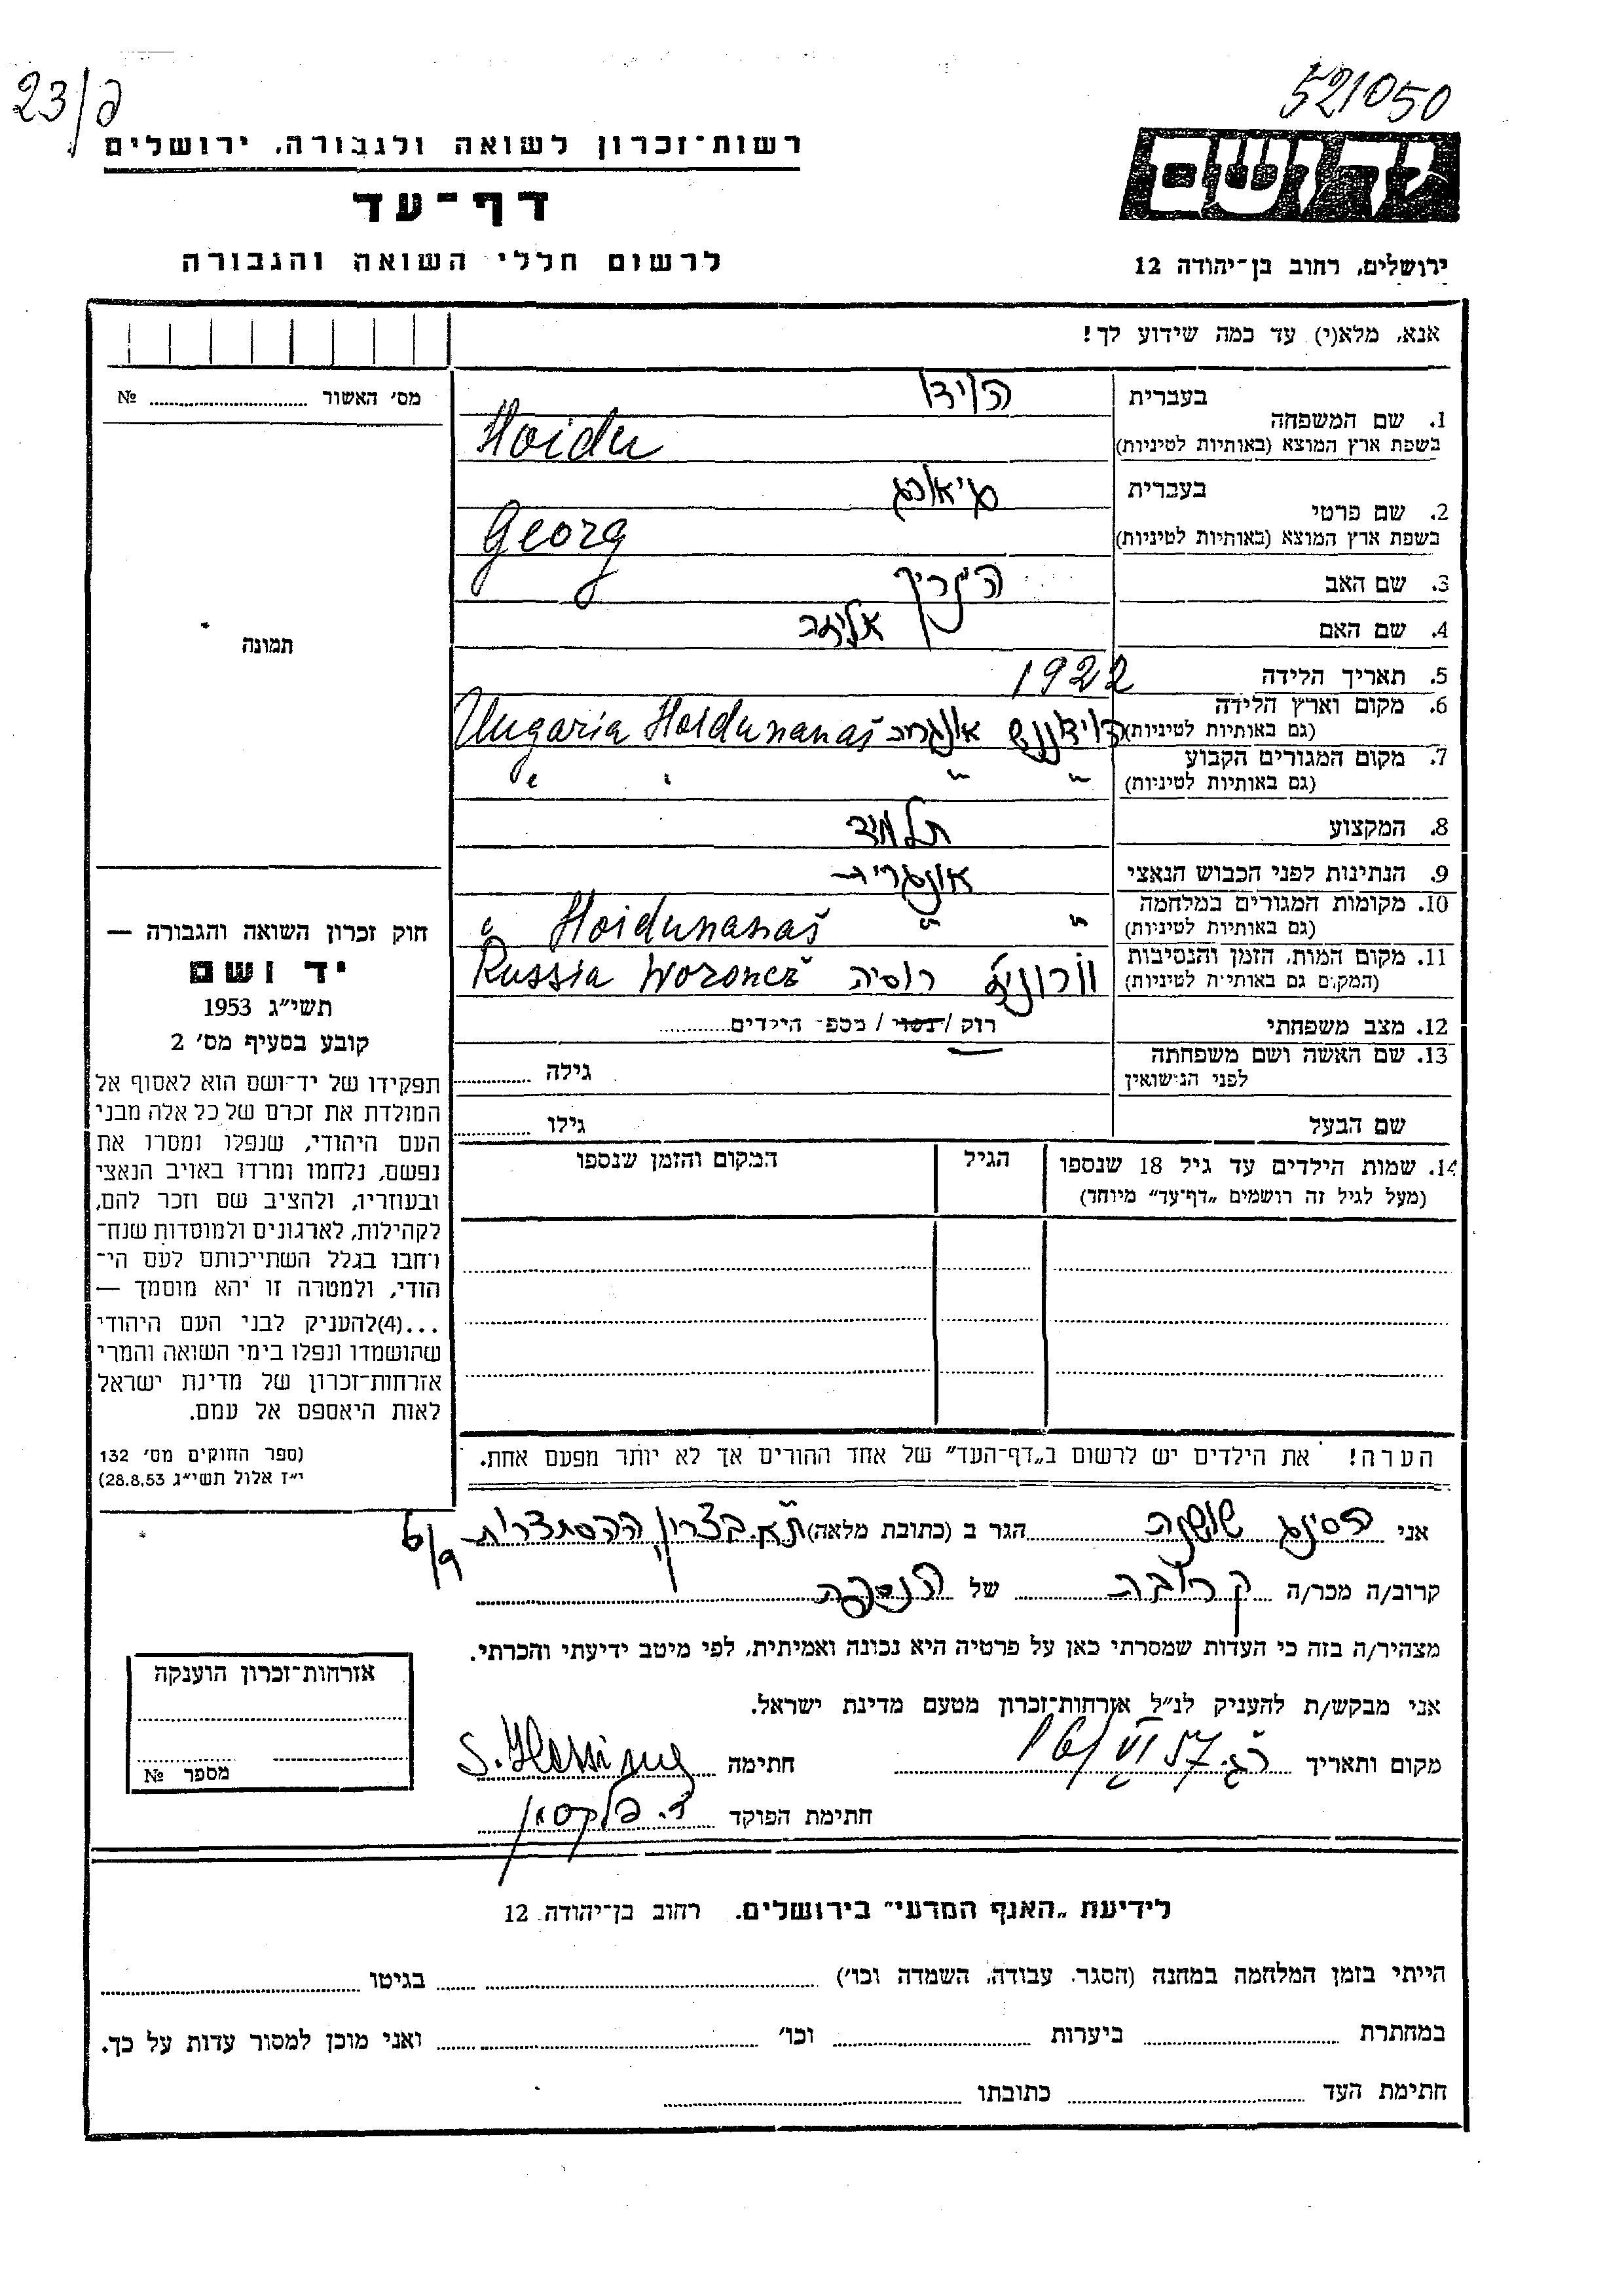 23/ג
521050
רשות־זכרון לשואה ולגבורה. ירושלים
דף־עד
לרשום חללי השואה והגבורה
יד ושם
ירושלים, רחוב בן־יהודה 12
אנא, מלא(י) עד כמה שידוע לך!
מס׳ האשור № ........
תמונה
1. שם המשפחה בעברית הוידו
בשפת ארץ המוצא (באותיות לטיניות) Hoidu
2. שם פרטי בעברית גיאורג
בשפת ארץ המוצא (באותיות לטיניות) Georg
3. שם האב הינריך
4. שם האם
5. תאריך הלידה 1922
6. מקום וארץ הלידה (גם באותיות לטיניות) הוידוננש אונגריה Hoidunanaš Ungaria
7. מקום המגורים הקבוע (גם באותיות לטיניות) " " " "
8. המקצוע תלמיד
9. הנתינות לפני הכבוש הנאצי אונגרית
10. מקומות המגורים במלחמה (גם באותיות לטיניות) " " Hoidunanaš "
11. מקום המות, הזמן והנסיבות (המקום גם באותיות לטיניות) וורוניז רוסיה Russia Woronež
12. מצב משפחתי רוק / נשוי / מספ׳ הילדים........
13. שם האשה ושם משפחתה לפני הנישואין גילה ........
שם הבעל גילו ........
14. שמות הילדים עד גיל 18 שנספו (מעל לגיל זה רושמים „דף־עד״ מיוחד) הגיל המקום והזמן שנספו
חוק זכרון השואה והגבורה —
יד ושם
תשי״ג 1953
קובע בסעיף מס׳ 2
תפקידו של יד־ושם הוא לאסוף אל
המולדת את זכרם של כל אלה מבני
העם היהודי, שנפלו ומסרו את
נפשם, נלחמו ומרדו באויב הנאצי
ובעוזריו, ולהציב שם וזכר להם,
לקהילות, לארגונים ולמוסדות שנח־
רחבו בגלל השתייכותם לעם הי־
הודי, ולמטרה זו יהא מוסמך —
...(4)להעניק לבני העם היהודי
שהושמדו ונפלו בימי השואה והמרי
אזרחות־זכרון של מדינת ישראל
לאות היאספם אל עמם.
(ספר החוקים מס׳ 132
י״ז אלול תשי״ג 28.8.53)
הערה! את הילדים יש לרשום ב„דף־העד״ של אחד ההורים אך לא יותר מפעם אחת.
אני הסינג שושנה הגר ב (כתובת מלאה) ת״א. בצרון ההסתדרות 6/9
קרוב/ה מכר/ה קרובה של הנספה
מצהיר/ה בזה כי העדות שמסרתי כאן על פרטיה היא נכונה ואמיתית, לפי מיטב ידיעתי והכרתי.
אני מבקש/ת להעניק לנ״ל אזרחות־זכרון מטעם מדינת ישראל.
מקום ותאריך ר״ג. 16/VI 57 חתימה S. Hessing
חתימת הפוקד
אזרחות־זכרון הוענקה
מספר №
לידיעת „האגף המדעי״ בירושלים. רחוב בן־יהודה 12
הייתי בזמן המלחמה במחנה (הסגר, עבודה, השמדה וכו׳) ........ בגיטו ........
במחתרת ........ ביערות ........ וכו׳ ........ ואני מוכן למסור עדות על כך.
חתימת העד ........ כתובתו ........